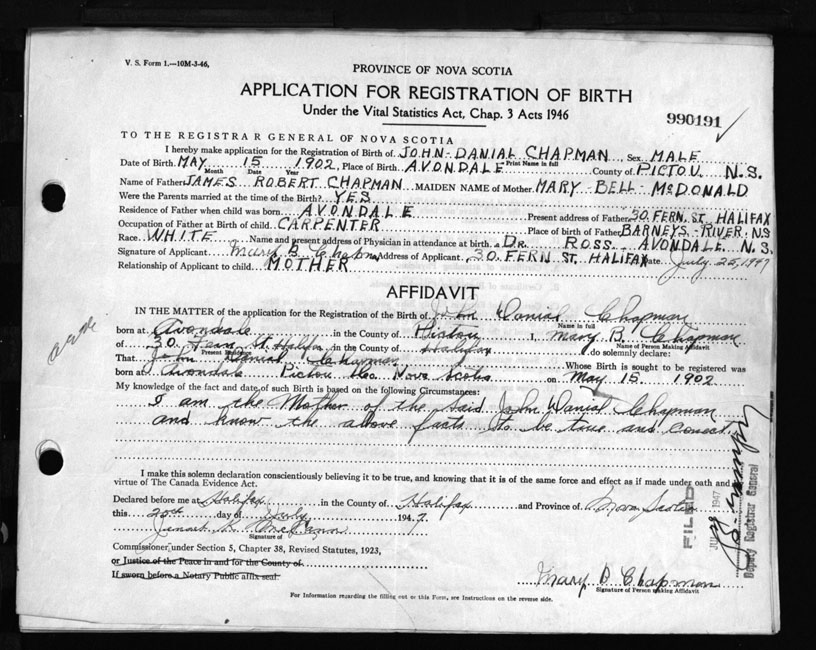 V. S. Form 1.—10M-3-46.
PROVINCE OF NOVA SCOTIA
APPLICATION FOR REGISTRATION OF BIRTH
Under the Vital Statistics Act, Chap. 3 Acts 1946
990191
TO THE REGISTRAR GENERAL OF NOVA SCOTIA
I hereby make application for the Registration of Birth of JOHN DANIAL CHAPMAN Sex MALE
Print Name in full
Date of Birth MAY 15 1902, Place of Birth AVONDALE County of PICTOU N.S.
Month Date Year
Name of Father JAMES ROBERT CHAPMAN MAIDEN NAME of Mother MARY BELL McDONALD
Were the Parents married at the time of the Birth? YES
Residence of Father when child was born AVONDALE Present address of Father 30 FERN ST HALIFAX
Occupation of Father at Birth of child CARPENTER Place of birth of Father BARNEYS RIVER N.S
Race WHITE Name and present address of Physician in attendance at birth a DR. ROSS AVONDALE N.S.
Signature of Applicant Mary B Chapman Address of Applicant 30 FERN ST. HALIFAX Date July 25, 1947
Relationship of Applicant to child MOTHER
AFFIDAVIT
IN THE MATTER of the application for the Registration of the Birth of John Danial Chapman
Name in full
born at Avondale in the County of Pictou I, Mary B. Chapman
Name of Person Making Affidavit
of 30 Fern St. Halifax of Halifax do solemnly declare:
Present Residence
That John Danial Chapman Whose Birth is sought to be registered was
born at Avondale Pictou Co. Nova Scotia on May 15 1902
My knowledge of the fact and date of such Birth is based on the following Circumstances:
I am the Mother of the said John Danial Chapman
and know the above facts to be true and correct
I make this solemn declaration conscientiously believing it to be true, and knowing that it is of the same force and effect as if made under oath and
virtue of The Canada Evidence Act.
Declared before me at Halifax in the County of Halifax and Province of Nova Scotia
this 25th day of July 1947
Signature of
Commissioner under Section 5, Chapter 38, Revised Statutes, 1923,
or Justice of the Peace in and for the County of
If sworn before a Notary Public affix seal.
Mary B Chapman
Signature of Person making Affidavit
For Information regarding the filling out or this Form, see Instructions on the reverse side.
FILED
1947
Deputy Registrar General